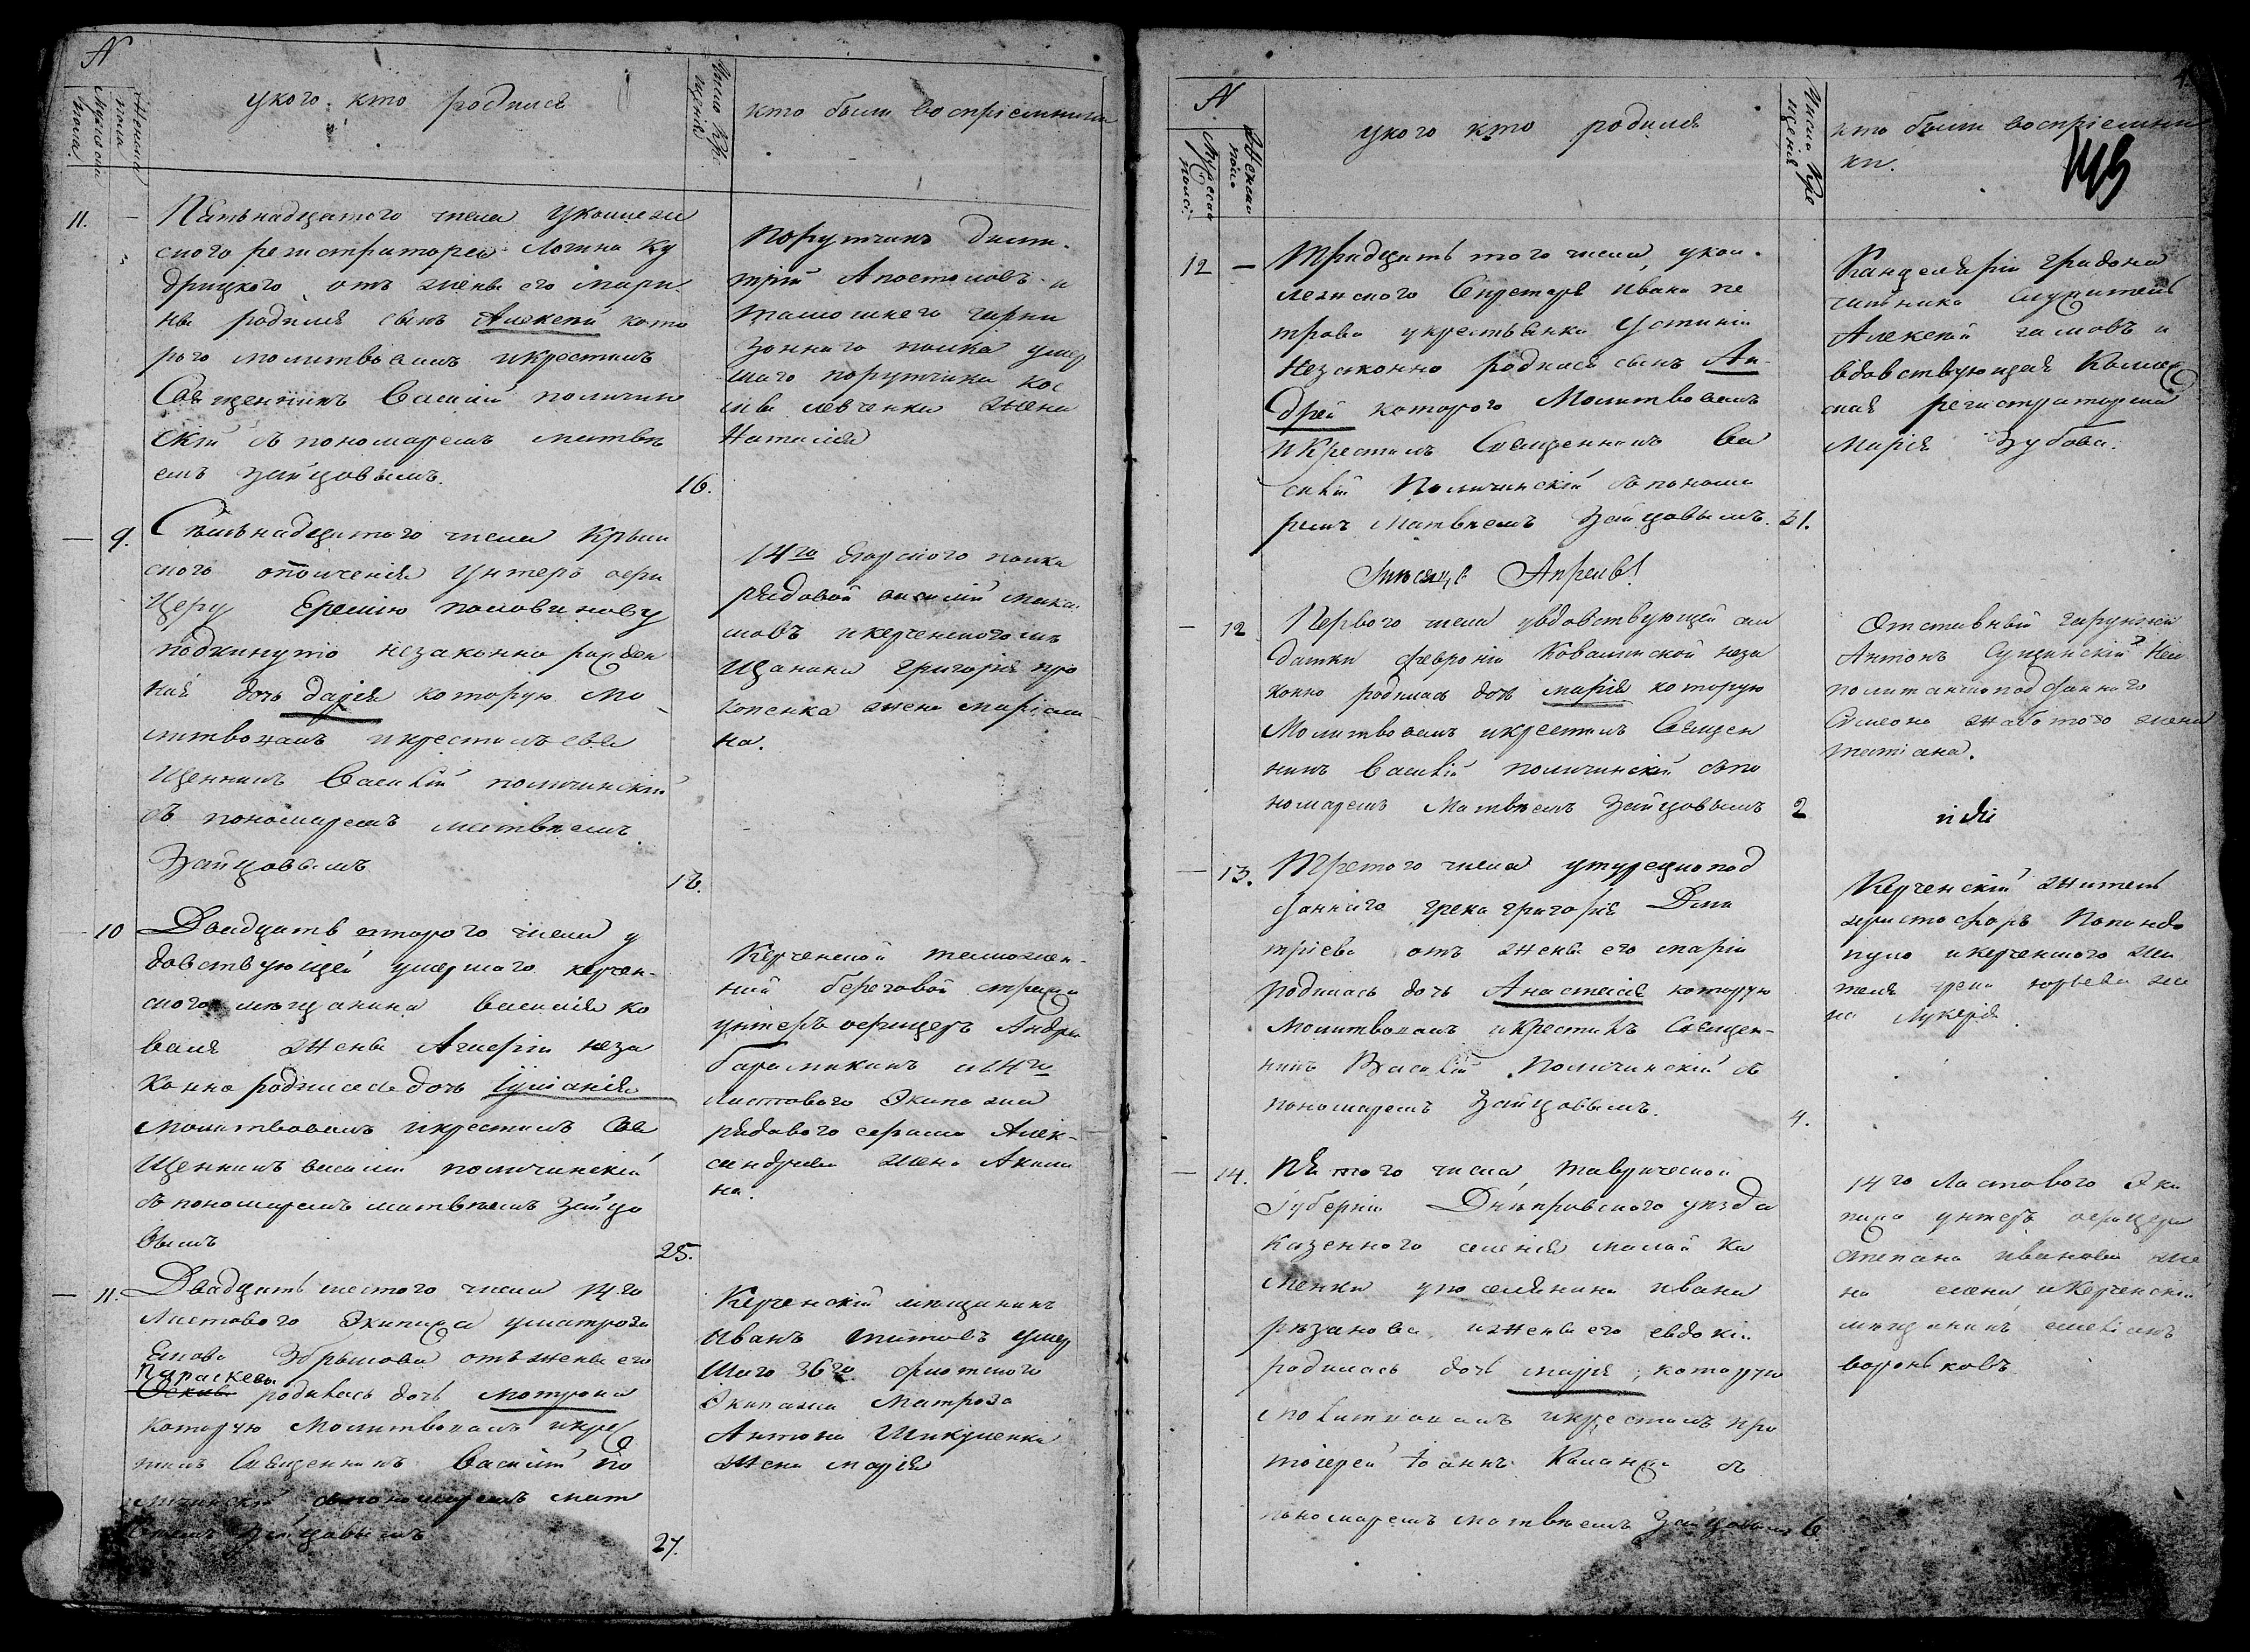 N
Мужеска пола
Женска пола
укого кто родился
Число кре
щенія
кто были воспріемники
11. —
Пятьнадцатого числа уколлеж
ского регистратора Логина Ку
дрицкого отъ жены его Мари
ны родился сынъ Алексѣй кото
рого молитвовалъ икрестилъ
Священникъ Василій поличин
скій съ пономаремъ матвѣ
емъ Зайцовымъ.
16.
Порутчикъ дими
трій Апостоловъ и
гарни
зоннаго полка умер
шаго порутчика кос
мы левченки жена
Наталія
— 9.
Семьнадцатого числа Крым
ского ополченія Унтеръ офи
Церу Еремію половинову
подкинуто незаконно рожден
ная дочь Дарія которую мо
литвовалъ икрестилъ свя
Щенникъ Василій поличинскій
съ пономаремъ матвѣемъ
Зайцовымъ
18.
14го Егорского полка
рядовой василій
икерченского мѣ
Щанина Григорія про
копенка жена маріам
на.
— 10
Двадцать второго числа у
довствующей умершого керчен
ского мѣщанина Василія ко
валя жены незa
конно родилась дочь Іуліанія
Молитвовалъ икрестилъ Свя
Щенникъ василій поличинскій
съ пономаремъ матвѣемъ Зайцо
вымъ
25.
Керченской таможен
ной береговой стражи
унтеръ офицеръ Андрей
и 14го
Ластового Экипажа
рядового Алек
сандрова жена Акили
на.
— 11.
Двадцать шестого числа 14.го
Ластового Экипажа уматроза
отъ жены его
Параскевы
родилась дочь мотрона
которую Молитвовалъ икре
стилъ Священникъ Василій по
личинскій съ пономаремъ мат
вѣемъ Зайцовымъ
27.
Керченскій мѣщанинъ
Иванъ Титовъ умер
Шаго 36го флотского
Экипажа Матроза
Антона Шикуленка
жена марія
N.
Мужеска полa
Женска пола
укого кто родился
Число кре
щенія
кто были воспріемни
ки.
12 —
Тридцать того числа, укол
лежского Секретаря Ивана пе
трова укрестьянки Устиніи
Незаконно родился сынъ Ан
дрей которого Молитвовалъ
и Крестилъ Священникъ Ва
силій Поличинскій съ понома
ремъ Матвѣемъ Зайцовымъ.
31.
Канцеляріи градона
чальника Служитель
Алексѣй и
вдовствующая Коллеж
ская регистраторша
Марія Зубова.
Мѣсяцъ Апрель!
— 12
Первого числа увдовствующей сол
датки февроніи Ковалинской неза
конно родилась дочь марія которую
Молитвовалъ икрестилъ Священ
никъ Василій поличинскій съ по
номаремъ Матвѣемъ Зайцовымъ
2
Отставный
Антонъ Сущинскій Неа
политанского подданнаго
Симона жена
татіана.
— 13.
Третого числа утурецко под
данного грека григорія Дми
тріева отъ жены его маріи
родилась дочь Анастасія которую
Молитвовалъ икрестилъ Священ
никъ Василій Поличинскій съ
пономаремъ Зайцовымъ.
4.
Керченскій житель
христофоръ Попандо
пуло икерченского жи
теля грека юрьева же
на Лукерія
— 14.
Пятого числа, Таврической
Губерніи Днѣпровского уѣзда
Казенного селенія малой Ка
менки упоселянина Ивана
рѣзанова ижены его евдокіи
родилась дочь марія, которую
молитвовалъ икрестилъ про
тоіерей Іоаннъ съ
пономаремъ матвѣемъ Зайцовымъ
6
14го Ластового Эки
пажа унтеръ офицера
степана иванова же
на елена иКерченскій
мѣщанинъ
вороньковъ